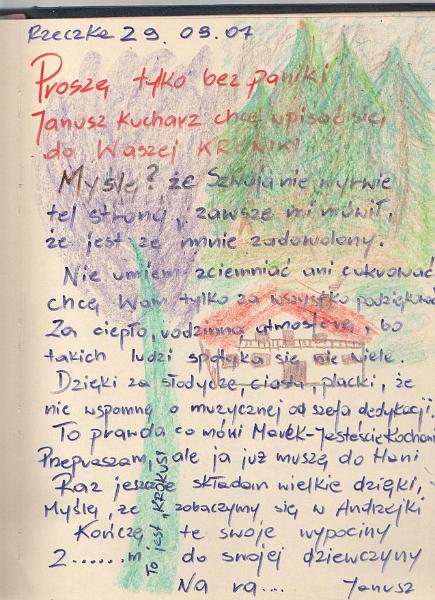 Rzeczka 29.09.07
Proszę tylko bez paniki
Janusz Kucharz chce wpisać się
do Waszej KRONIKI
Myślę?, że Szwaja nie wyrwie
tej strony, zawsze mi mówił,
że jest ze mnie zadowolony.
Nie umiem ściemniać ani cukrować
chcę Wam tylko za wszystko podziękować
Za ciepło, rodzinną atmosferę, bo
takich ludzi spotyka się nie wiele.
Dzięki za słodycze, ciasta, placki, że
nie wspomnę o muzycznej od szefa dedykacji.
To prawda co mówi Marek - Jesteście Kochani
Przepraszam, ale ja już muszę do Hani
Raz jeszcze składam wielkie dzięki,
Myślę, że zobaczymy się w Andrzejki
Kończę te swoje wypociny
Z......m do swojej dziewczyny
Na ra... Janusz
To jest KROKUS!